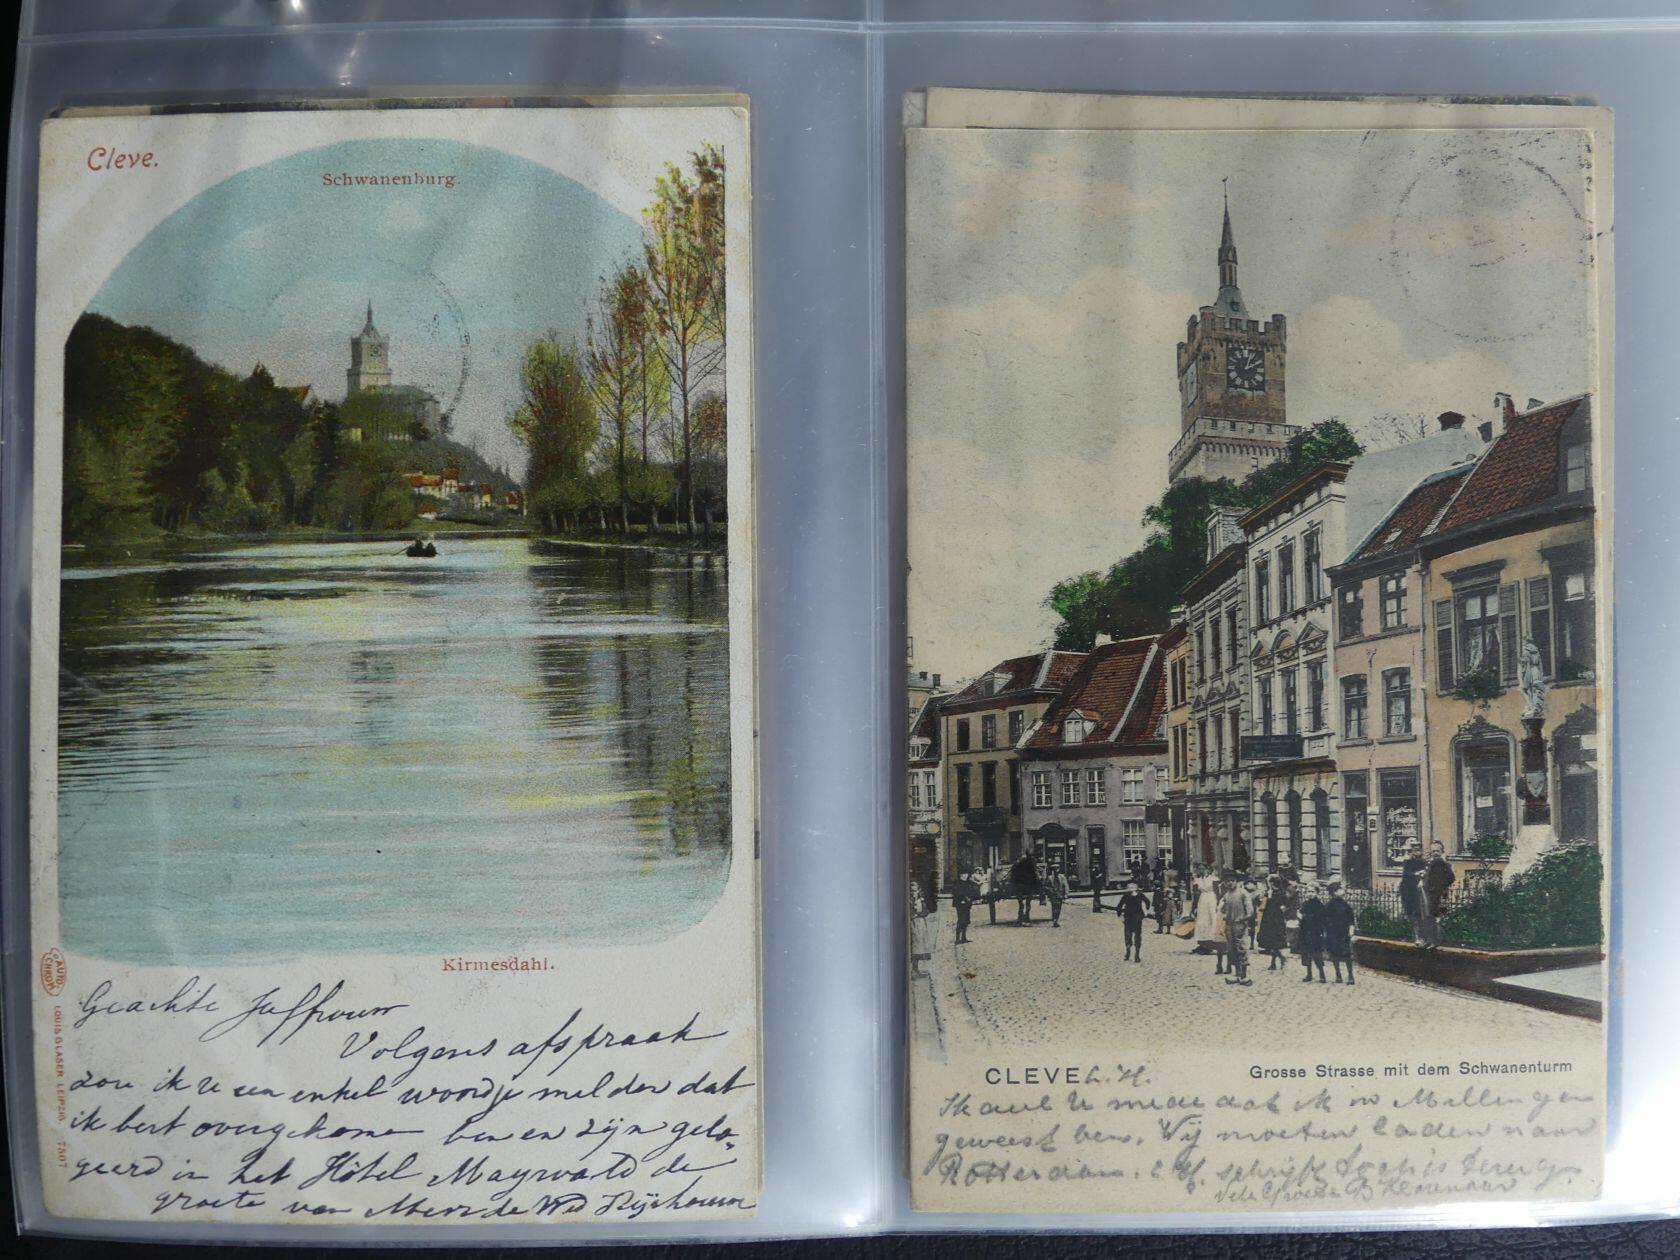 Cleve.
Schwanenburg.
Kirmesdahl.
AUTO-
CHROM
LOUIS GLASER LEIPZIG. 7507
Geachte Juffrouw
Volgens afspraak
zou ik u een enkel woordje melden dat
ik best overgekomen ben en zijn gelo-
geerd in het Hôtel Maywald de
groete van de Wed
CLEVE L. H.
Grosse Strasse mit dem Schwanenturm
Ik deel U mede dat ik in Millingen
geweest ben. Wij moeten laden naar
Rotterdam. schrijft